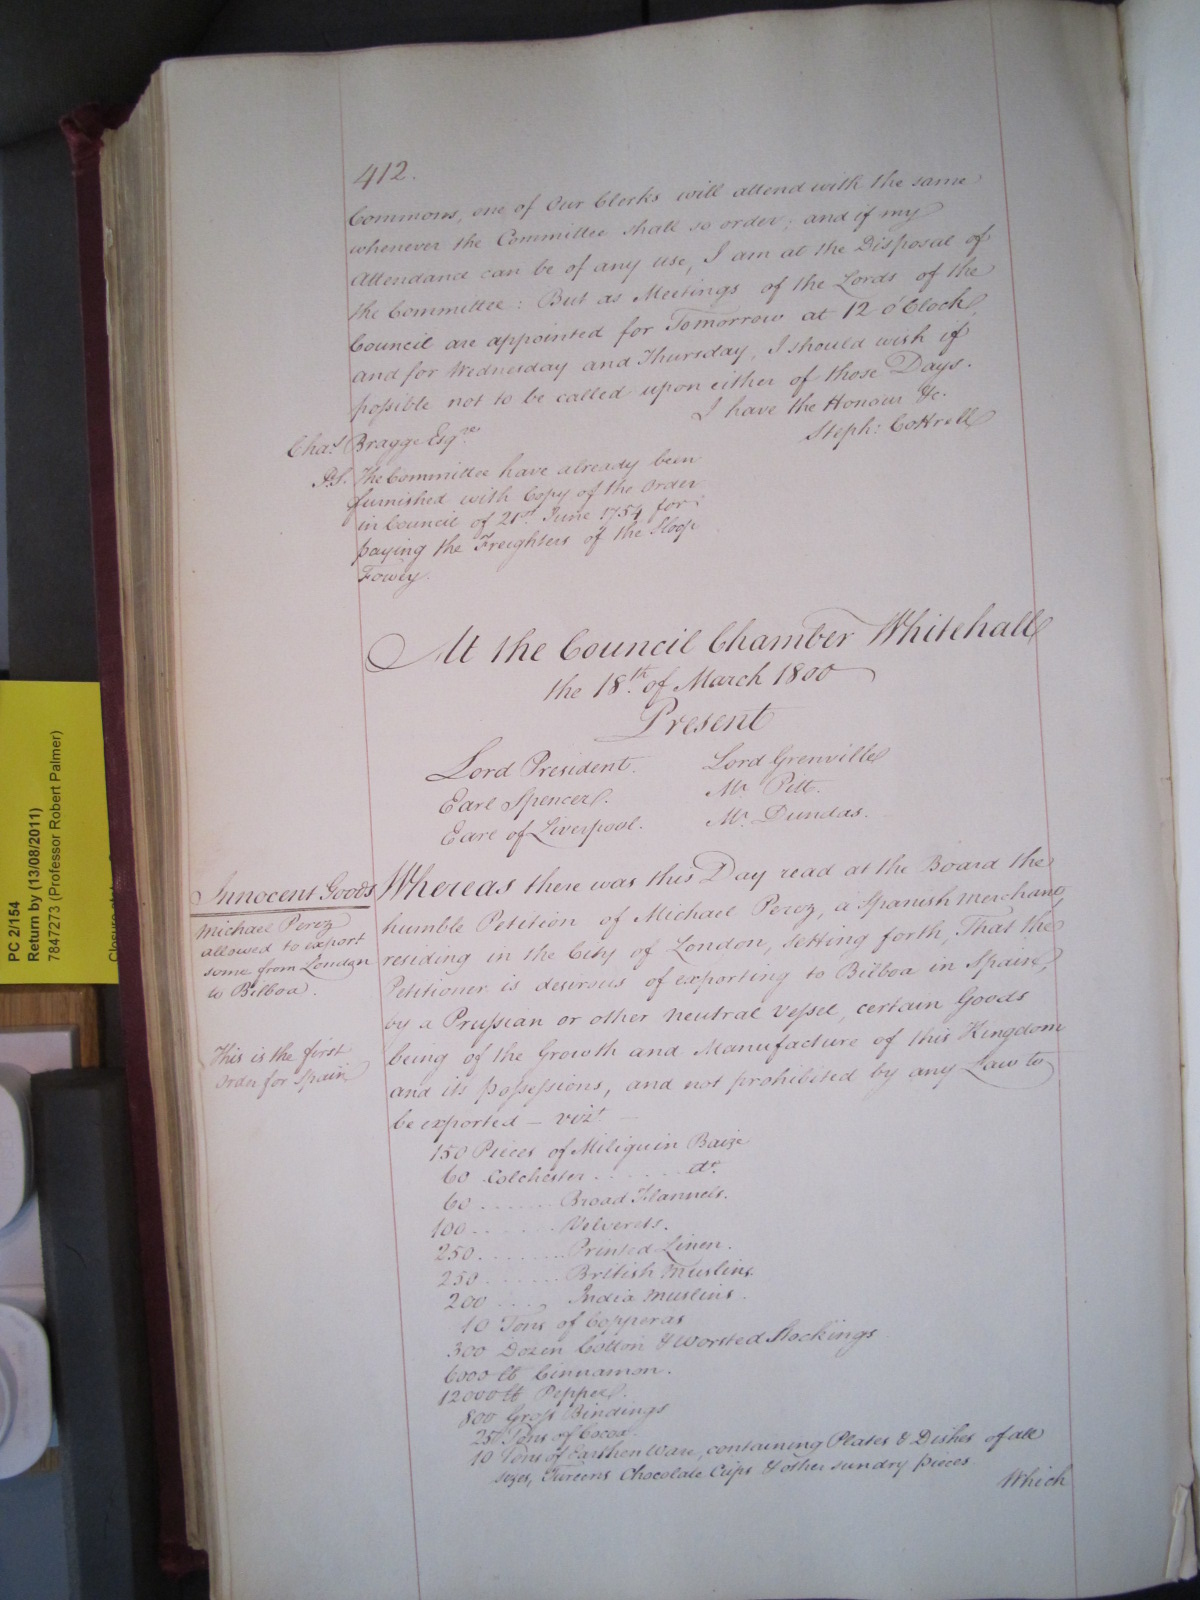 412.
Commons, one of Our Clerks will attend with the same
whenever the Committee shall so order; and if my
Attendance can be of any use, I am at the Disposal of
the Committee: But as Meetings of the Lords of the
Council are appointed for Tomorrow at 12 o'Clock,
and for Wednesday and Thursday, I should wish if
possible not to be called upon either of those Days.
I have the Honour &c.
Steph: Cottrell
Chas. Bragge Esqre.
P.S. The Committee have already been
furnished with Copy of the Order
in Council of 21st. June 1754 for
paying the Freighters of the Sloop
Fowey.
At the Council Chamber Whitehall
the 18th. of March 1800
Present
Lord President. Lord Grenville
Earl Spencer. Mr. Pitt.
Earl of Liverpool. Mr. Dundas.
Innocent Goods
Michael Perez
allowed to export
some from London
to Bilboa.
This is the first
Order for Spain
Whereas there was this Day read at the Board the
humble Petition of Michael Perez, a Spanish Merchant,
residing in the City of London, setting forth, That the
Petitioner is desirous of exporting to Bilboa in Spain,
by a Prussian or other neutral Vessel, certain Goods
being of the Growth and Manufacture of this Kingdom
and its possessions, and not prohibited by any Law to
be exported – vizt.
150 Pieces of Miliquin Baize
60 Colchester . . . . . . do.
60 . . . . . . . Broad Flannels.
100 . . . . . . . Velverets.
250 . . . . . . . Printed Linen.
250 . . . . . . . British Muslins
200 . . . . India Muslins.
10 Tons of Copperas
300 Dozen Cotton & Worsted Stockings
6000 lb Cinnamon.
12000 lb Pepper.
800 Gross Bindings
25 Tons of Cocoa.
10 Tons of Earthen Ware, containing Plates & Dishes of all
sizes, Tureens Chocolate Cups & other sundry pieces
Which
PC 2/154
Return by (13/08/2011)
7847273 (Professor Robert Palmer)